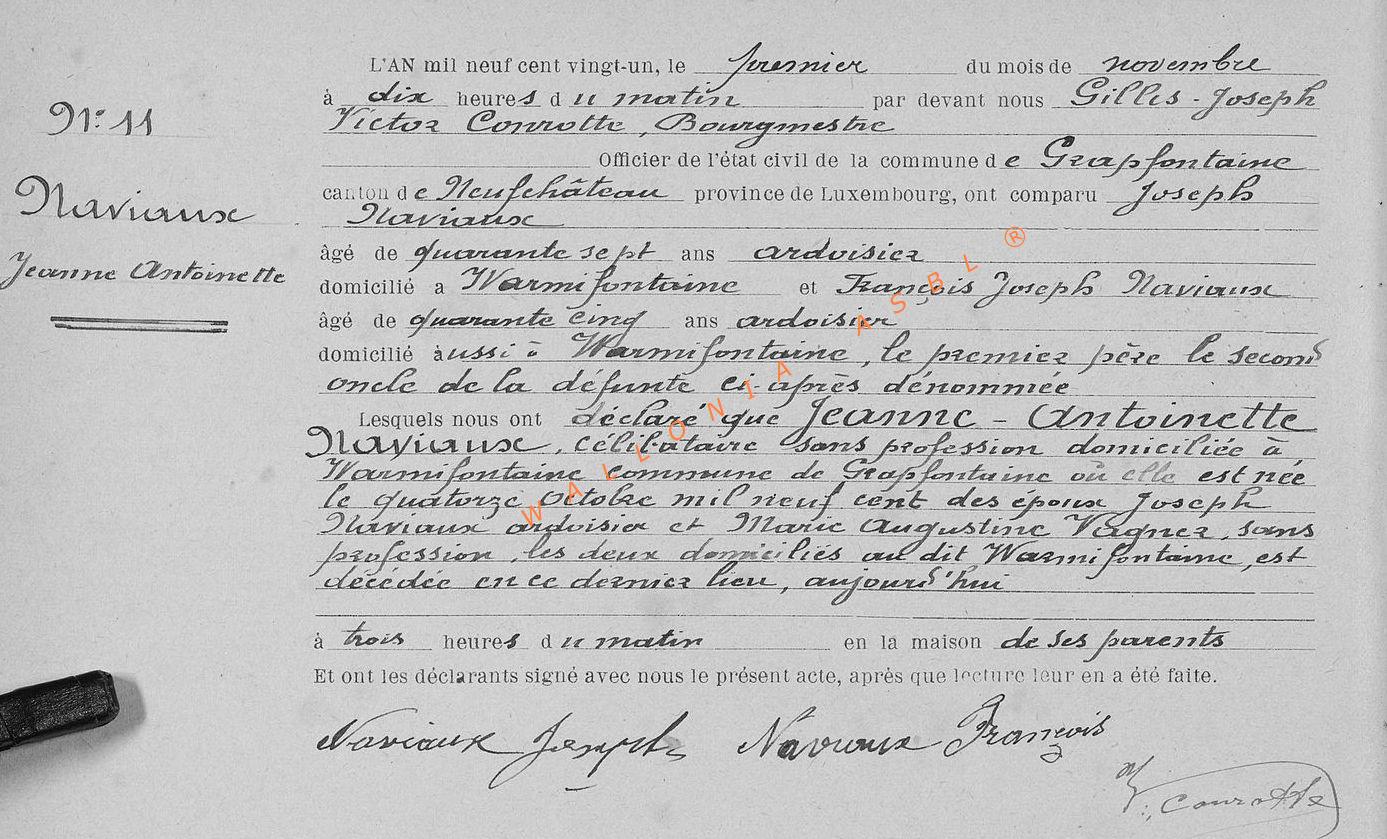 N° 11
Naviaux
Jeanne Antoinette
L'AN mil neuf cent vingt-un, le premier du mois de novembre
à dix heures du matin par devant nous Gilles-Joseph
Victor Conrotte, Bourgmestre
Officier de l'état civil de la commune de Grapfontaine
canton de Neufchâteau province de Luxembourg, ont comparu Joseph
Naviaux
âgé de quarante sept ans ardoisier
domicilié a Warmifontaine et François Joseph Naviaux
âgé de quarante cinq ans ardoisier
domicilié àussi à Warmifontaine, le premier père le second
oncle de la défunte ci-après dénommée
Lesquels nous ont déclaré que Jeanne-Antoinette
Naviaux, célibataire sans profession domiciliée à
Warmifontaine commune de Grapfontaine où elle est née
le quatorze octobre mil neuf cent des époux Joseph
Naviaux ardoisier et Marie Augustine Vagner, sans
profession, les deux domiciliés au dit Warmifontaine, est
décédée en ce dernier lieu, aujourd'hui
à trois heures du matin en la maison de ses parents
Et ont les déclarants signé avec nous le présent acte, après que lecture leur en a été faite.
Naviaux Joseph Naviaux François
V. Conrotte
WALLONIA ASBL ®